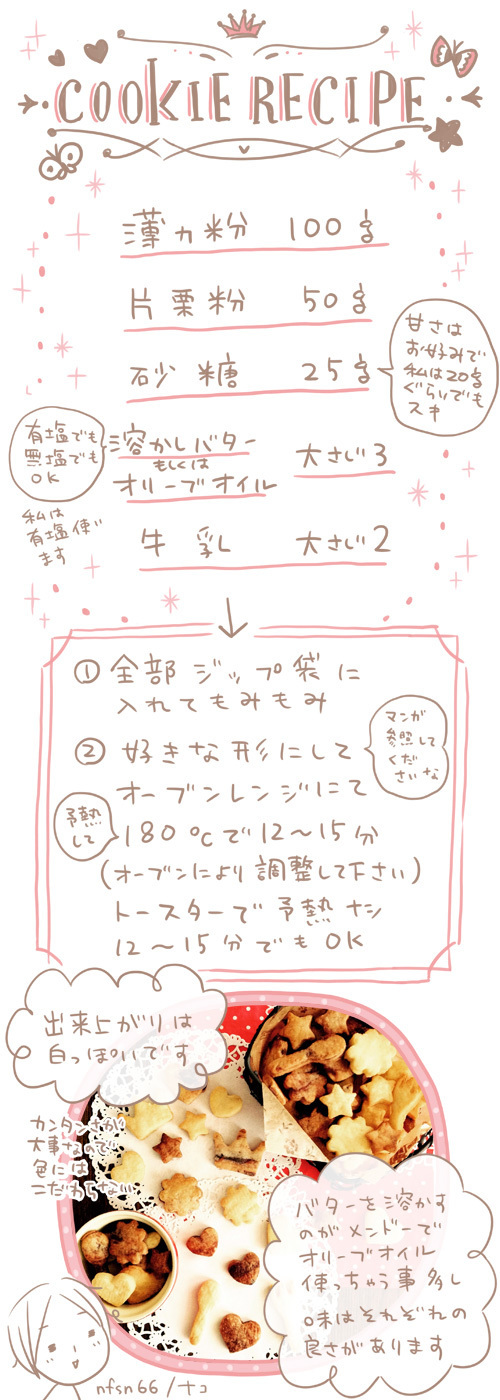 COOKIE RECIPE
薄力粉 100g
片栗粉 50g
砂糖 25g
甘さは
お好みで
私は20g
ぐらいでも
スキ
有塩でも
無塩でも
OK
私は
有塩使い
ます
溶かしバター
もしくは
オリーブオイル
大さじ3
牛乳 大さじ2
①全部ジップ袋に
入れてもみもみ
②好きな形にして
マンガ
参照して
くだ
さいな
オーブンレンジにて
予熱
して
180℃で12〜15分
(オーブンにより調整して下さい)
トースターで予熱ナシ
12〜15分でもOK
出来上がりは
白っぽいです
カンタンさが
大事なので
色には
こだわらない
バターを溶かす
のがメンドーで
オリーブオイル
使っちゃう事多し
味はそれぞれの
良さがあります
nfsn66/ナコ